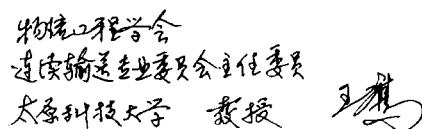 物流工程学会
连续输送专业委员会主任委员
太原科技大学 教授 王鹰